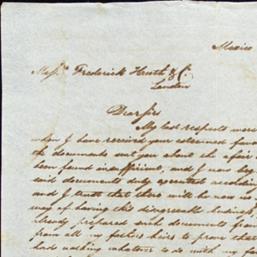 Mexico
Messrs. Frederick Huth & Co.
London
Dear Sirs
My last respects were
when I have received your esteemed favor
the documents sent you about the affair
been found insufficient, and I now beg
said documents duly executed according
and I trust that there will be now no
way of having this disagreeable business
already prepared said documents from
from all my father's heirs to prove that
had nothing whatever to do with my